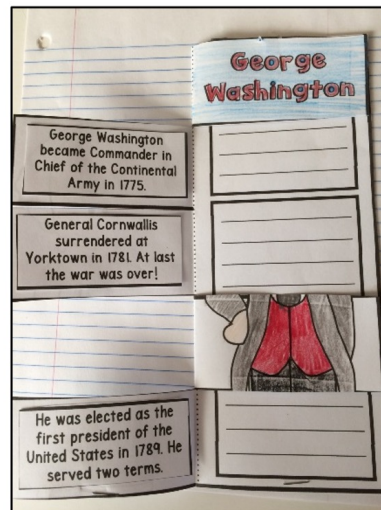 George
Washington
George Washington
became Commander in
Chief of the Continental
Army in 1775.
General Cornwallis
surrendered at
Yorktown in 1781. At last
the war was over!
He was elected as the
first president of the
United States in 1789. He
served two terms.